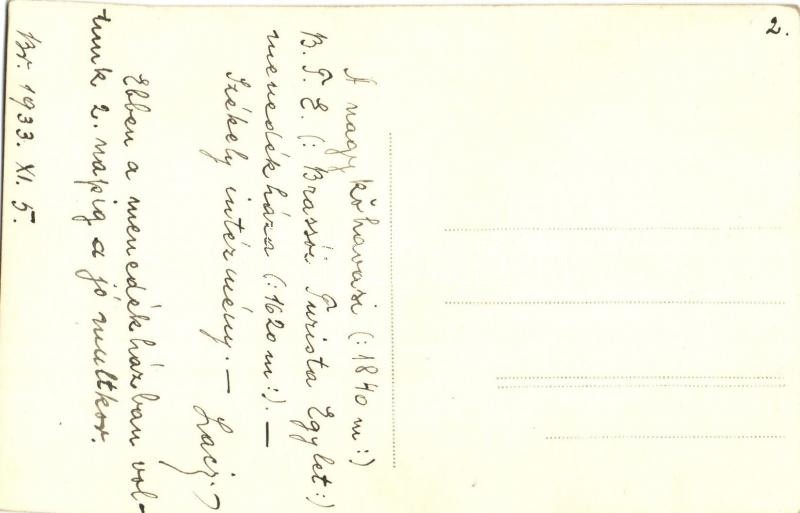 2.
A nagykőhavasi (:1840 m:)
B. T. E. (: Brassói Turista Egylet:)
menedékháza (:1620 m:). —
Székely intézmény. —
Laci.
Ebben a menedékházban vol-
tunk 2. napig a jó multkor.
Br. 1933. XI. 5.